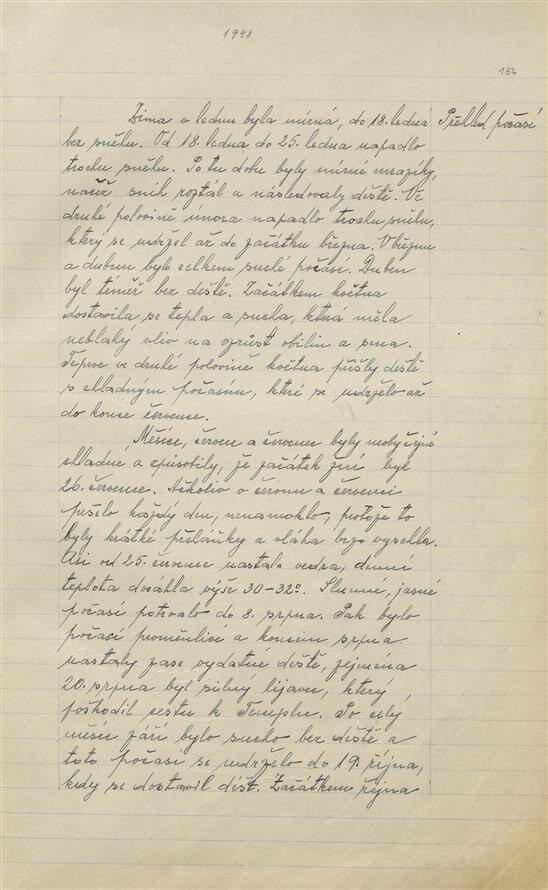 1948
154
Zima v lednu byla mírná, do 18. ledna Přehled počasí
bez sněhu. Od 18. ledna do 25. ledna napadlo
trochu sněhu. Po tu dobu byly mírné mrazíky,
načež sníh roztál a následovaly deště. Ve
druhé polovině února napadlo trochu sněhu,
který se udržel až do začátku března. V březnu
a dubnu bylo celkem suché počasí. Duben
byl téměř bez deště. Začátkem května
dostavila se tepla a sucha, která měla
neblahý vliv na vzrůst obilin a sena.
Teprve ve druhé polovině května přišly deště
s chladným počasím, které se udrželo až
do konce července.
Měsíce, červen a červenec byly neobyčejně
chladné a způsobily, že začátek žní byl
26. července. Ačkoliv v červnu a červenci
pršelo každý den, nenamoklo, protože to
byly krátké přeháňky a vláha brzo vyschla.
Asi od 25. července nastala vedra, denní
teplota dosáhla výše 30-32°. Slunné, jasné
počasí potrvalo do 8. srpna. Pak bylo
počasí proměnlivé a koncem srpna
nastaly zase vydatné deště, zejména
20. srpna byl silný lijavec, který
poškodil cestu k Templu. Po celý
měsíc září bylo sucho bez deště a
toto počasí se udrželo do 19. října,
kdy se dostavil déšť. Začátkem října